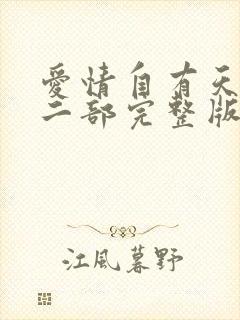 愛情自有天
二部完整版
江風暮野